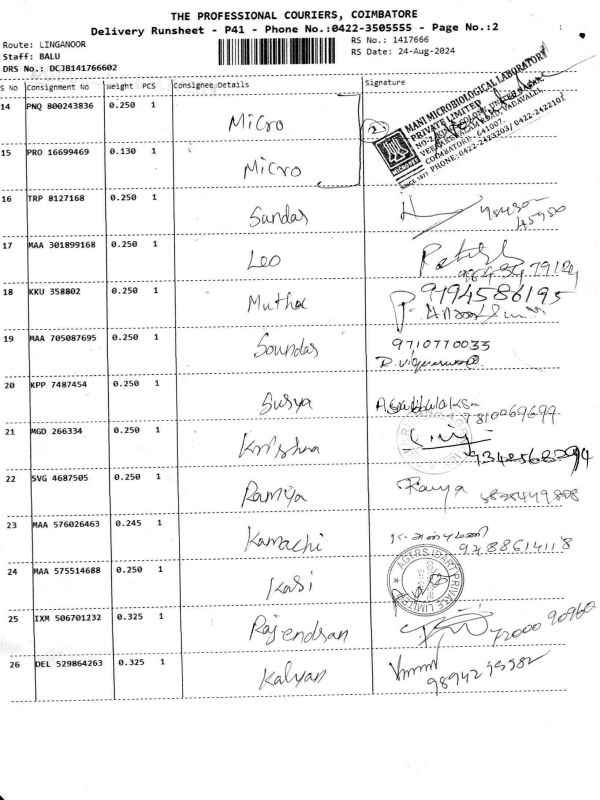 THE PROFESSIONAL COURIERS, COIMBATORE
Delivery Runsheet - P41 - Phone No.:0422-3505555 - Page No.:2
Route: LINGANOOR
RS No.: 1417666
Staff: BALU
RS Date: 24-Aug-2024
DRS No.: DCJB141766602
S No Consignment No Weight PCS Consignee Details Signature
14 PNQ 800243836 0.250 1 Micro
2
MANI MICROBIOLOGICAL LABORATORY
PRIVATE LIMITED
COIMBATORE - 641007.
PHONE: 0422-2423203/ 0422-2422101
SINCE 1977
15 PRO 16699469 0.130 1 Micro
16 TRP 8127168 0.250 1 Sundas
17 MAA 301899168 0.250 1 Leo
18 KKU 358802 0.250 1 Muthu 9194586195
19 MAA 705087695 0.250 1 Soundas 9710770033
20 KPP 7487454 0.250 1 Surya 7810069699
21 MGD 266334 0.250 1 Krishna
22 SVG 4687505 0.250 1 Ramya Ramya
23 MAA 576026463 0.245 1 Kamachi 9288614118
24 MAA 575514688 0.250 1 Kasi
PRIVATE LIMITED
25 IXM 506701232 0.325 1 Rajendran 72000 90960
26 DEL 529864263 0.325 1 Kalyan